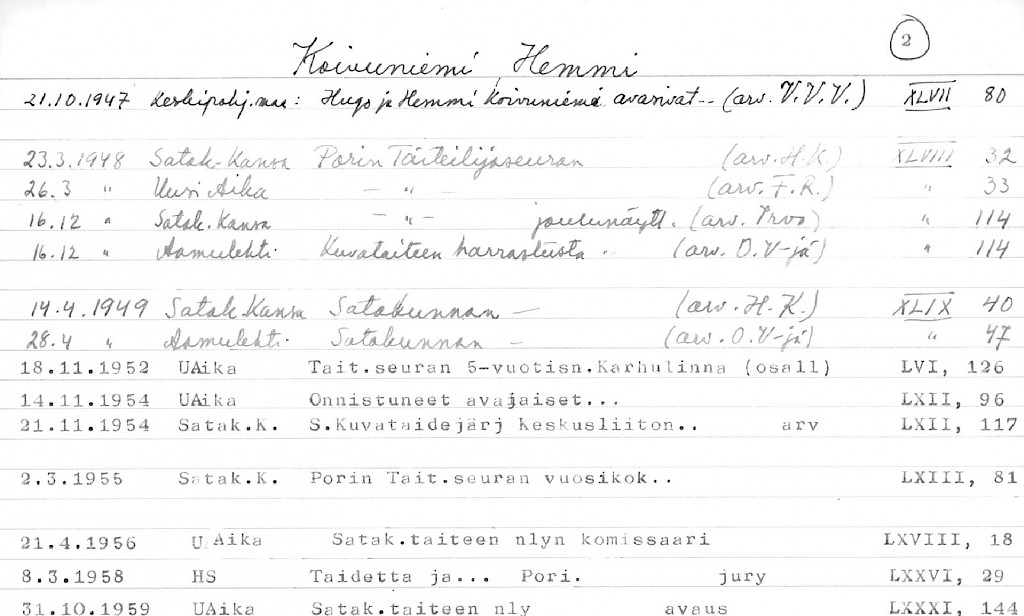 2
Koivuniemi Hemmi
21.10.1947 Keskipohj.maa: Hugo ja Hemmi Koivuniemi avasivat-- (arv. V.V.V.) XLVII 80
23.3.1948 Satak-Kansa Porin Taiteilijaseuran (arv. H.K.) XLVIII 32
26.3 " Uusi Aika — " — (arv. F.R.) " 33
16.12 " Satak.Kansa — " — joulunäytt. (arv. Arvo) " 114
16.12 " Aamulehti. Kuvataiteen harrastusta .. (arv. O.V-jä) " 114
14.4.1949 Satak Kansa Satakunnan — (arv. H.K.) XLIX 40
28.4 " Aamulehti. Satakunnan — (arv. O.V-jä) " 47
18.11.1952 UAika Tait.seuran 5-vuotisn.Karhulinna (osall) LVI, 126
14.11.1954 UAika Onnistuneet avajaiset... LXII, 96
21.11.1954 Satak.K. S.Kuvataidejärj Keskusliiton.. arv LXII, 117
2.3.1955 Satak.K. Porin Tait.seuran vuosikok.. LXIII, 81
21.4.1956 U Aika Satak.taiteen nlyn komissaari LXVIII, 18
8.3.1958 HS Taidetta ja... Pori. jury LXXVI, 29
31.10.1959 UAika Satak.taiteen nly avaus LXXXI, 144